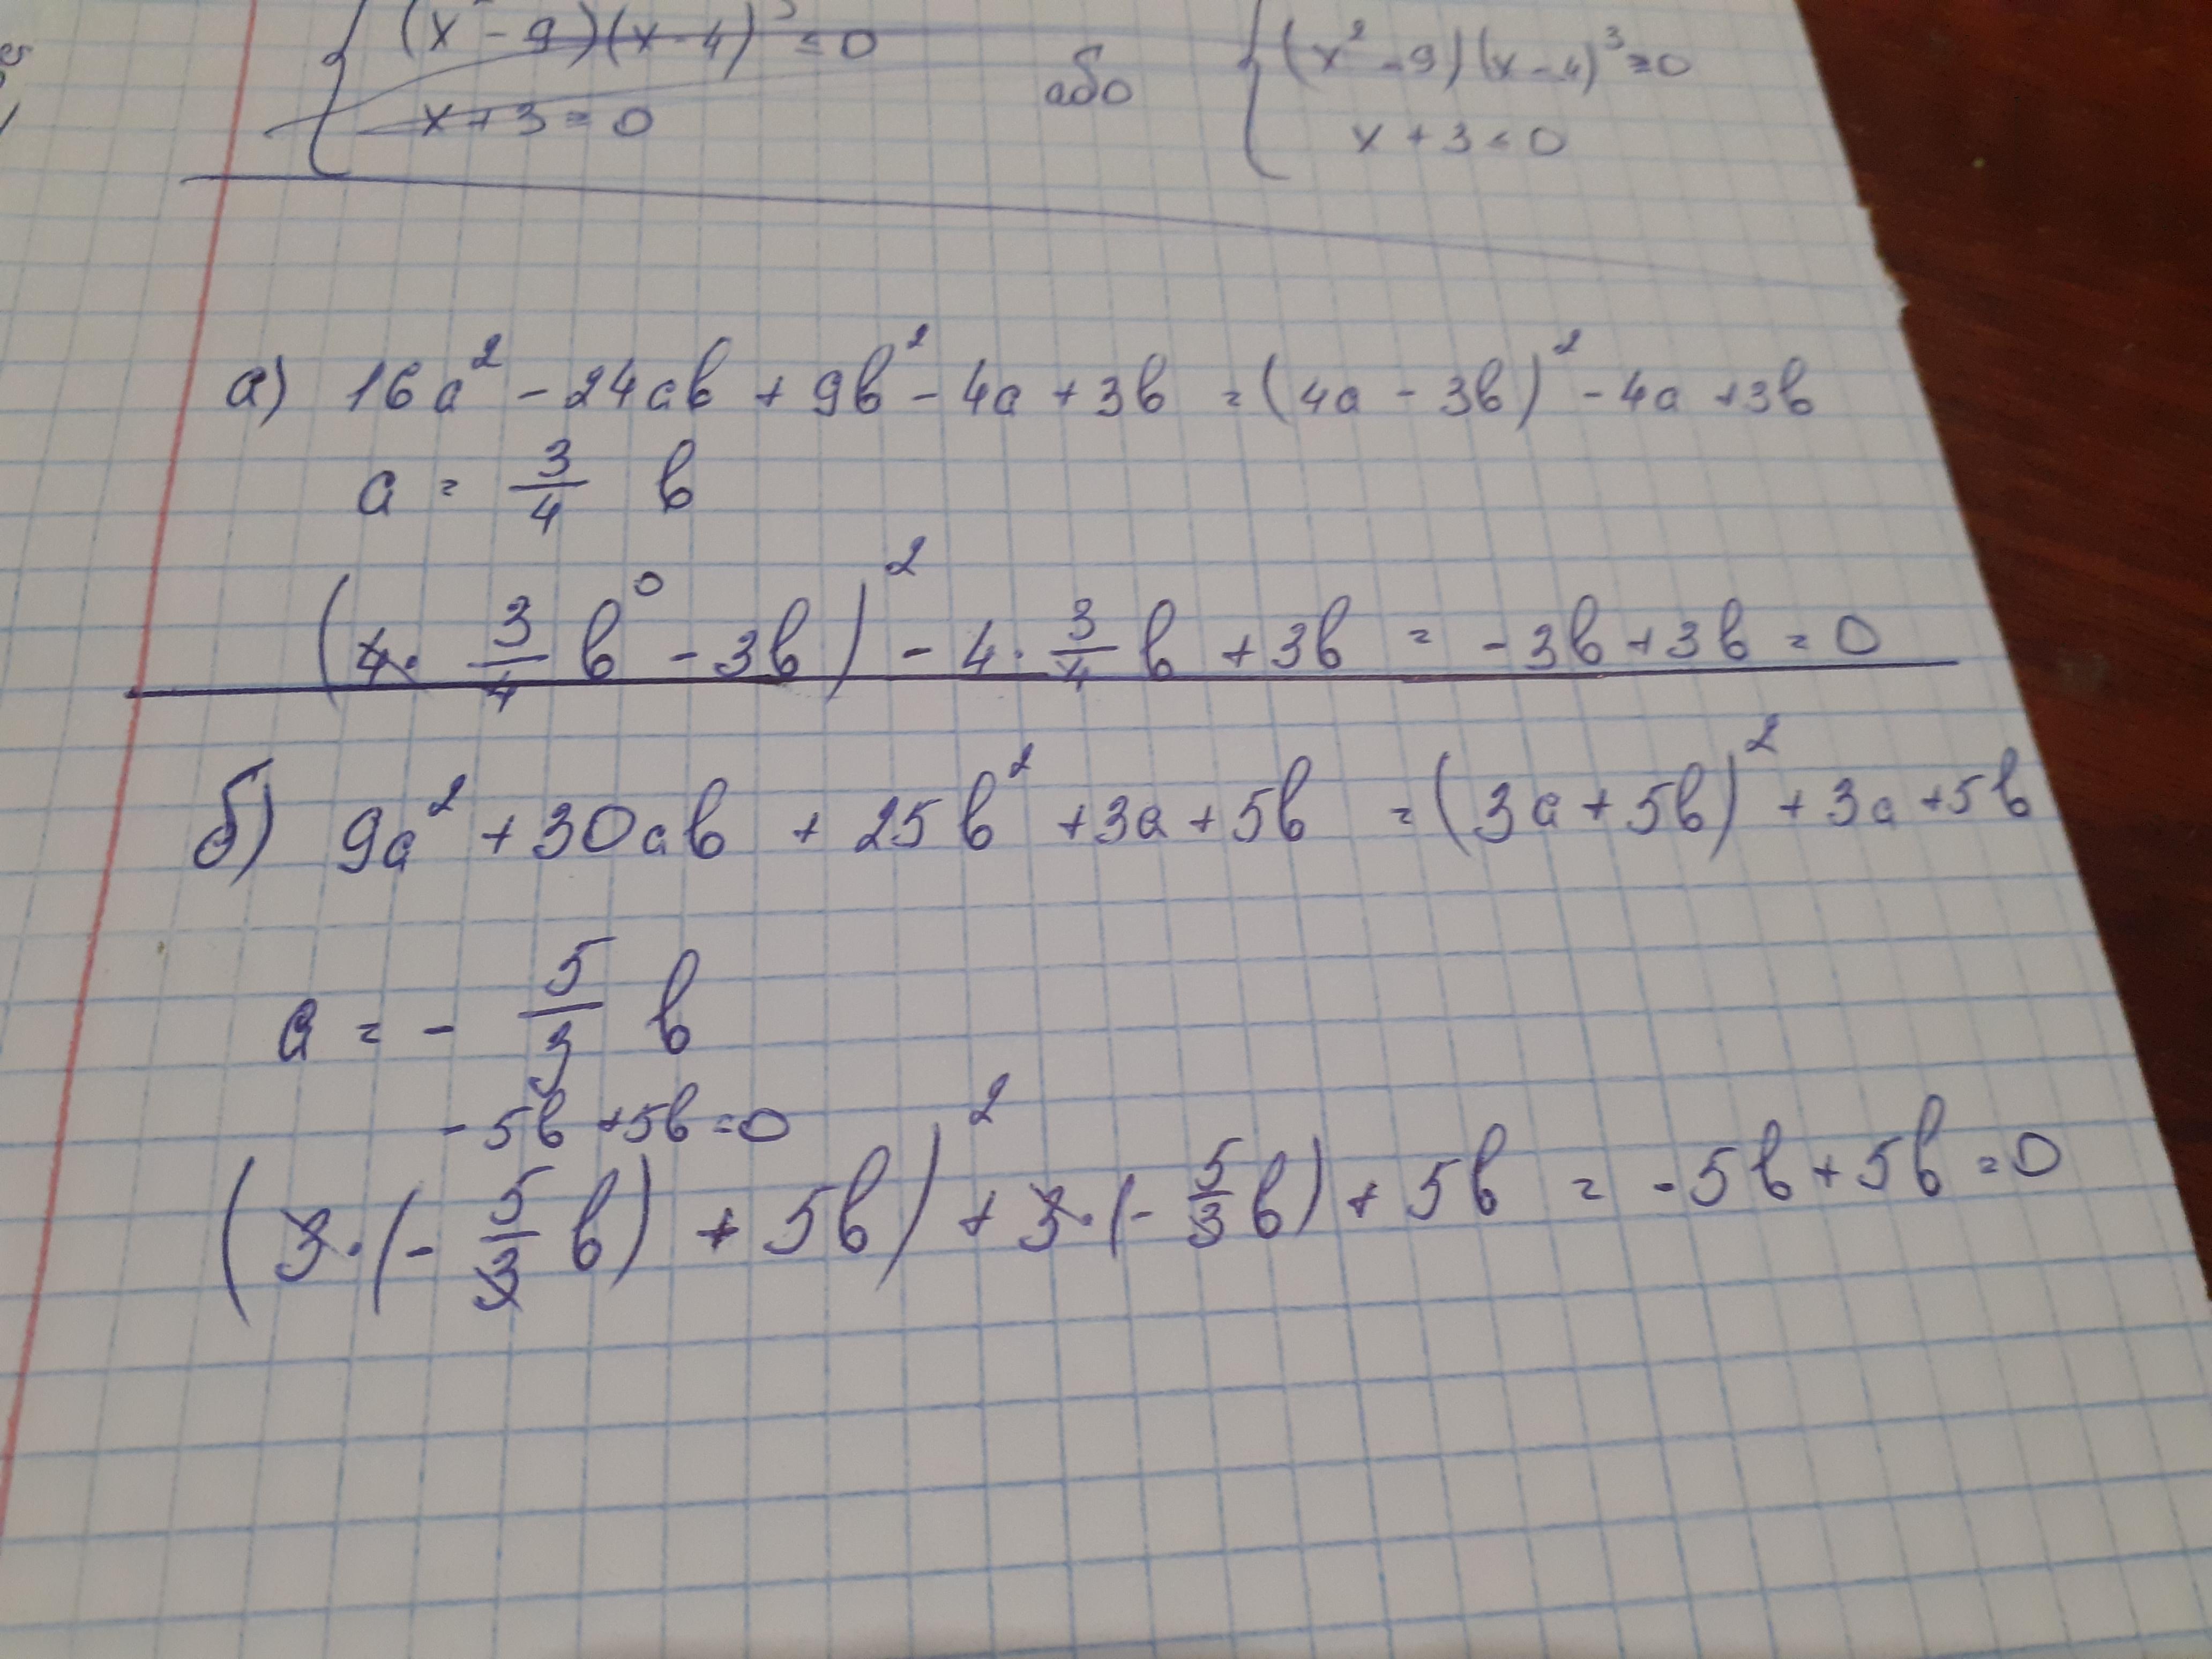 (x² - 9)(x - 4)³ ≤ 0 або (x² - 9)(x - 4)³ ≥ 0
x + 3 = 0 x + 3 < 0
а) 16a² - 24ab + 9b² - 4a + 3b = (4a - 3b)² - 4a + 3b
a = 3/4 b
0
(4 · 3/4 b - 3b)² - 4 · 3/4 b + 3b = -3b + 3b = 0
б) 9a² + 30ab + 25b² + 3a + 5b = (3a + 5b)² + 3a + 5b
a = - 5/3 b
- 5b + 5b = 0
(3 · (- 5/3 b) + 5b)² + 3 · (- 5/3 b) + 5b = - 5b + 5b = 0